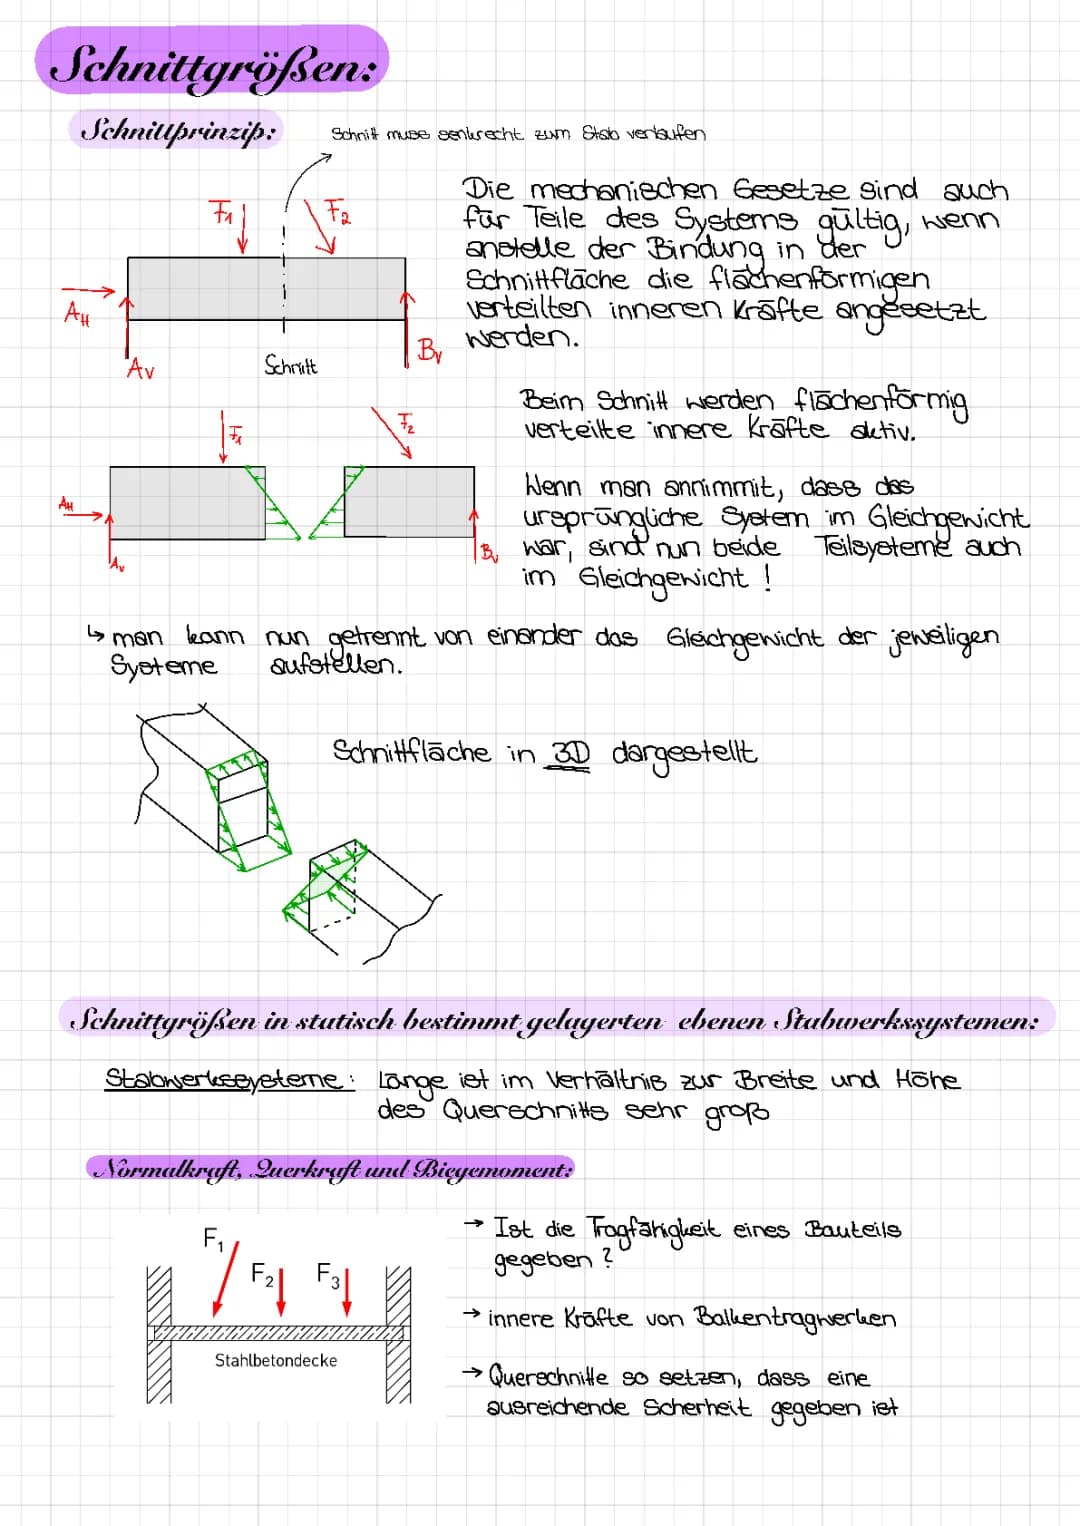 Schnittgrößen:
Schnittprinzip:
Schnitt muss senkrecht zum Stab verlaufen
F1
F2
AH
AV
Schnitt
BV
Die mechanischen Gesetze sind auch
für Teile des Systems gültig, wenn
anstelle der Bindung in der
Schnittfläche die flächenförmigen
verteilten inneren Kräfte angesetzt
werden.
F1
F2
AH
AV
BV
Beim Schnitt werden flächenförmig
verteilte innere Kräfte aktiv.
Wenn man annimmit, dass das
ursprüngliche System im Gleichgewicht
war, sind nun beide Teilsysteme auch
im Gleichgewicht !
↳ man kann nun getrennt von einander das Gleichgewicht der jeweiligen
Systeme aufstellen.
Schnittfläche in 3D dargestellt
Schnittgrößen in statisch bestimmt gelagerten ebenen Stabwerkssystemen:
Stabwerkssysteme: Länge ist im Verhältnis zur Breite und Höhe
des Querschnitts sehr groß
Normalkraft, Querkraft und Biegemoment:
F1
F2
F3
Stahlbetondecke
→ Ist die Tragfähigkeit eines Bauteils
gegeben?
→ innere Kräfte von Balkentragwerken
→ Querschnitte so setzen, dass eine
ausreichende Sicherheit gegeben ist